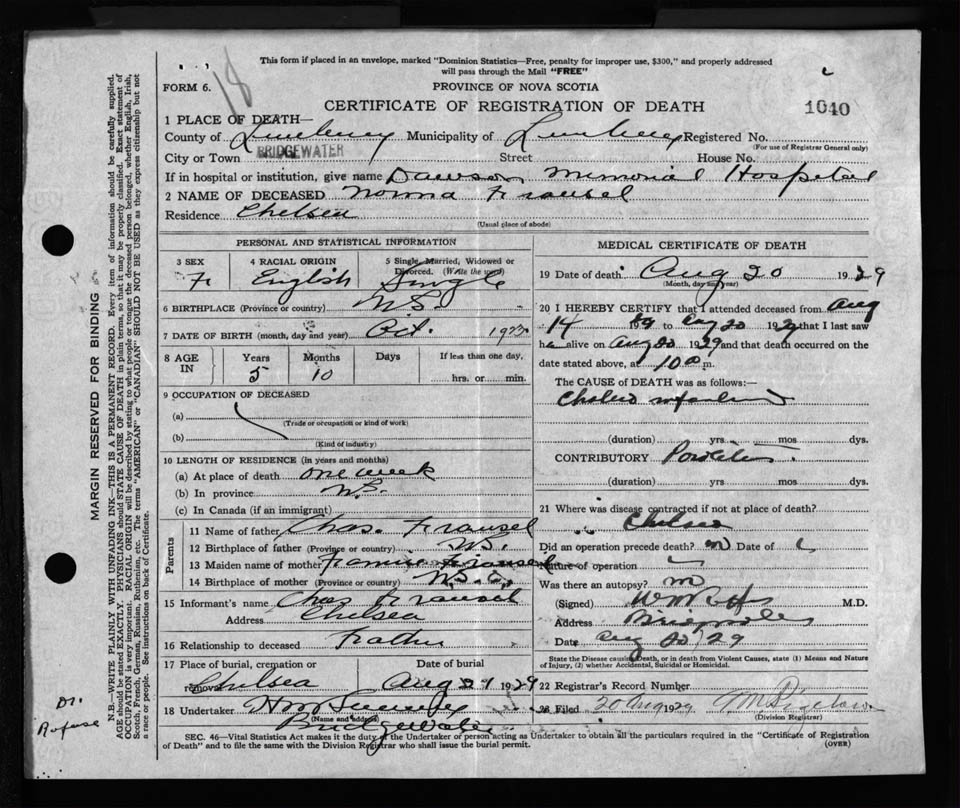 This form if placed in an envelope, marked "Dominion Statistics—Free, penalty for improper use, $300," and properly addressed
will pass through the Mail "FREE"
FORM 6.
18
PROVINCE OF NOVA SCOTIA
CERTIFICATE OF REGISTRATION OF DEATH
1040
1 PLACE OF DEATH—
County of Lunenburg Municipality of Lunenburg Registered No.
(For use of Registrar General only)
City or Town BRIDGEWATER Street House No.
If in hospital or institution, give name Dawson Memorial Hospital
2 NAME OF DECEASED Norma
Residence Chelsea
(Usual place of abode)
PERSONAL AND STATISTICAL INFORMATION
3 SEX 4 RACIAL ORIGIN 5 Single, Married, Widowed or Divorced. (Write the word)
F English Single
6 BIRTHPLACE (Province or country) N.S.
7 DATE OF BIRTH (month, day and year) Oct. 1923
8 AGE IN Years Months Days If less than one day,
5 10 hrs. or min.
9 OCCUPATION OF DECEASED
(a)
(Trade or occupation or kind of work)
(b)
(Kind of industry)
10 LENGTH OF RESIDENCE (in years and months)
(a) At place of death one week
(b) In province N.S.
(c) In Canada (if an immigrant)
Parents
11 Name of father Chas.
12 Birthplace of father (Province or country) N.S.
13 Maiden name of mother
14 Birthplace of mother (Province or country)
15 Informant's name Chas
Address Chelsea
16 Relationship to deceased Father
17 Place of burial, cremation or removal Date of burial
Chelsea Aug 21 1929
18 Undertaker
(Name and address)
Bridgewater
MEDICAL CERTIFICATE OF DEATH
19 Date of death Aug 20 1929
(Month, day and year)
20 I HEREBY CERTIFY that I attended deceased from Aug
14 1929 to Aug 20 1929 that I last saw
h alive on Aug 20 1929 and that death occurred on the
date stated above, at 10 m.
The CAUSE of DEATH was as follows:—
Cholera infantum
(duration) yrs. mos. dys.
CONTRIBUTORY
(duration) yrs. mos. dys.
21 Where was disease contracted if not at place of death?
Chelsea
Did an operation precede death? no Date of
Nature of operation
Was there an autopsy? no
(Signed) M.D.
Address
Date Aug 20, 29
State the Disease causing Death, or in death from Violent Causes, state (1) Means and Nature
of Injury, (2) whether Accidental, Suicidal or Homicidal.
22 Registrar's Record Number
23 Filed 20 Aug 1929
(Division Registrar)
SEC. 46—Vital Statistics Act makes it the duty of the Undertaker or person acting as Undertaker to obtain all the particulars required in the "Certificate of Registration
of Death" and to file the same with the Division Registrar who shall issue the burial permit.
(OVER)
MARGIN RESERVED FOR BINDING
N.B.—WRITE PLAINLY WITH UNFADING INK—THIS IS A PERMANENT RECORD. Every item of information should be carefully supplied.
AGE should be stated EXACTLY. PHYSICIANS should STATE CAUSE OF DEATH in plain terms, so that it may be properly classified. Exact statement of
OCCUPATION is very important. RACIAL ORIGIN will be described by stating to what people or tongue the deceased person belonged, whether English, Irish,
Scotch, French, German, Russian, Ruthenian, etc. The terms "AMERICAN" or "CANADIAN" SHOULD NOT BE USED as they express citizenship but not
a race or people. See instructions on back of Certificate.